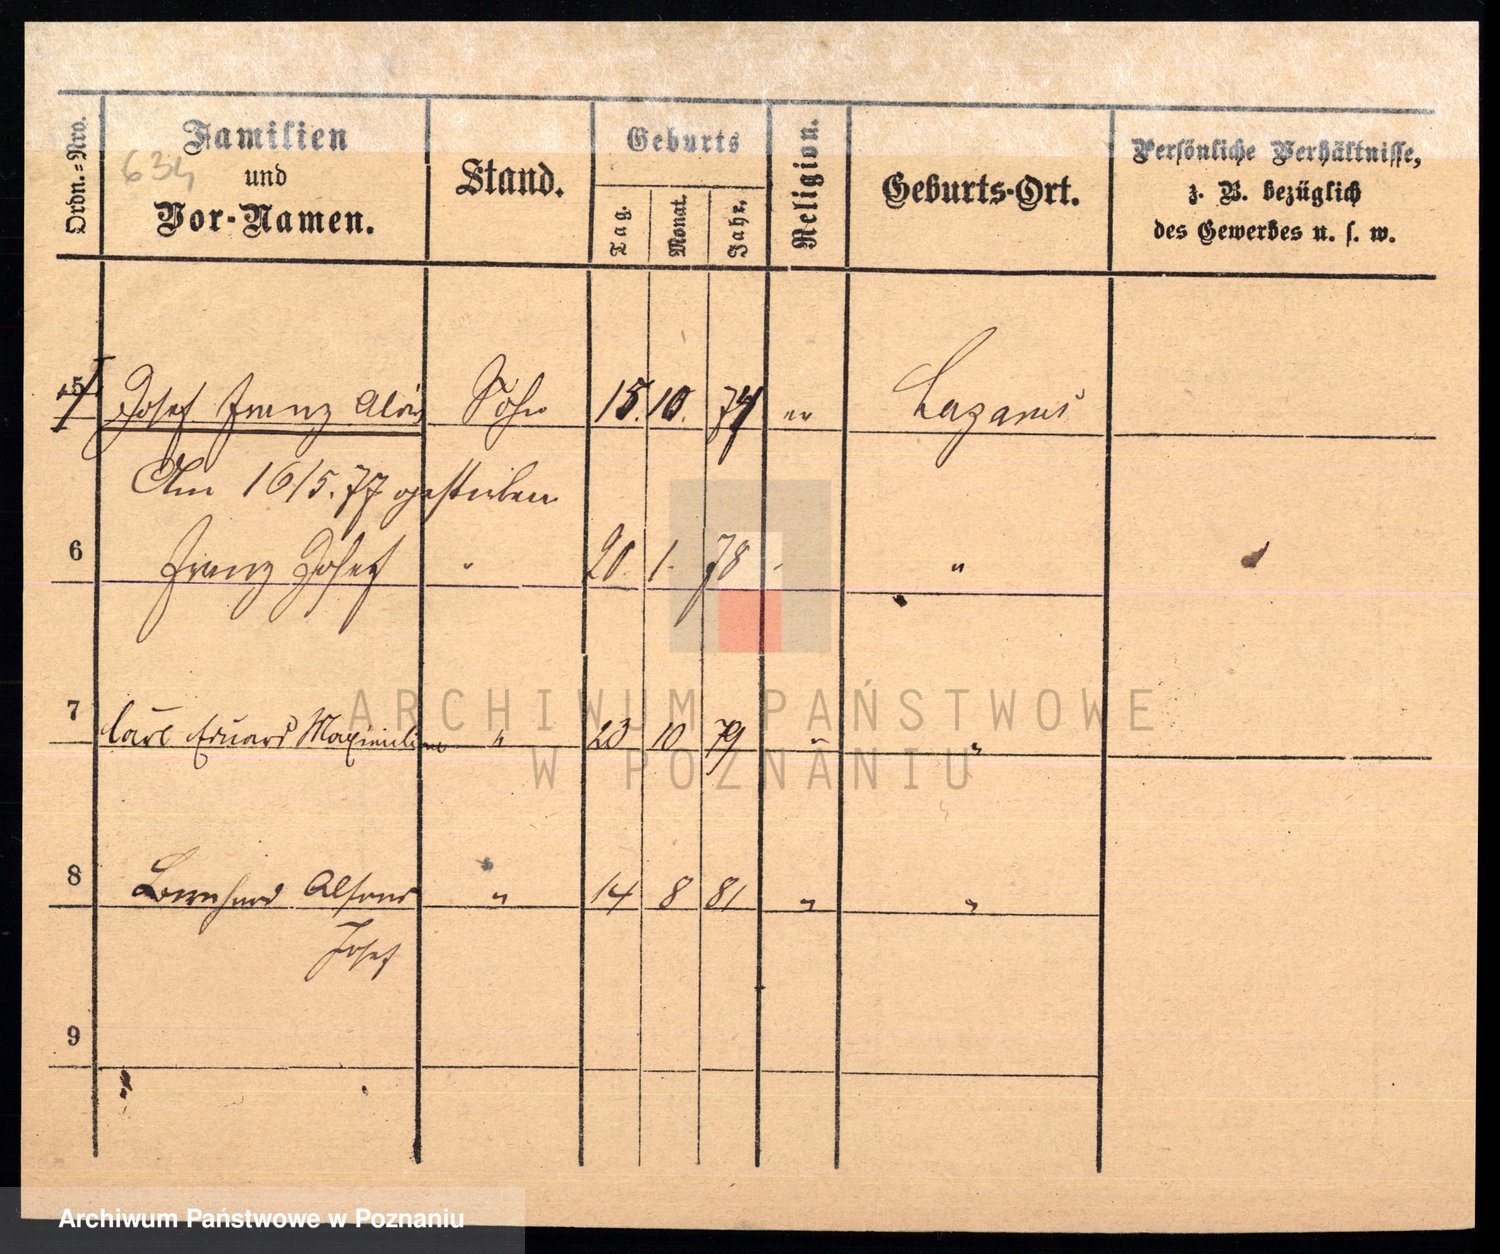 Ordn.=Nro.
Familien
und
Vor-Namen.
634
Stand.
Geburts
Tag.
Monat.
Jahr.
Religion.
Geburts-Ort.
Persönliche Verhältnisse,
z. B. bezüglich
des Gewerbes u. s. w.
5 Josef Franz Alois Sohn 15. 10. 74 Lazarus
Am 16/5. 77 gestorben
6 Franz Josef " 20. 1. 78 - "
7 Carl Eduard Maximilian " 23 10 79 " "
8 Bernhard Alfons " 14 8 81 " "
Josef
9
ARCHIWUM PAŃSTWOWE
W POZNANIU
Archiwum Państwowe w Poznaniu